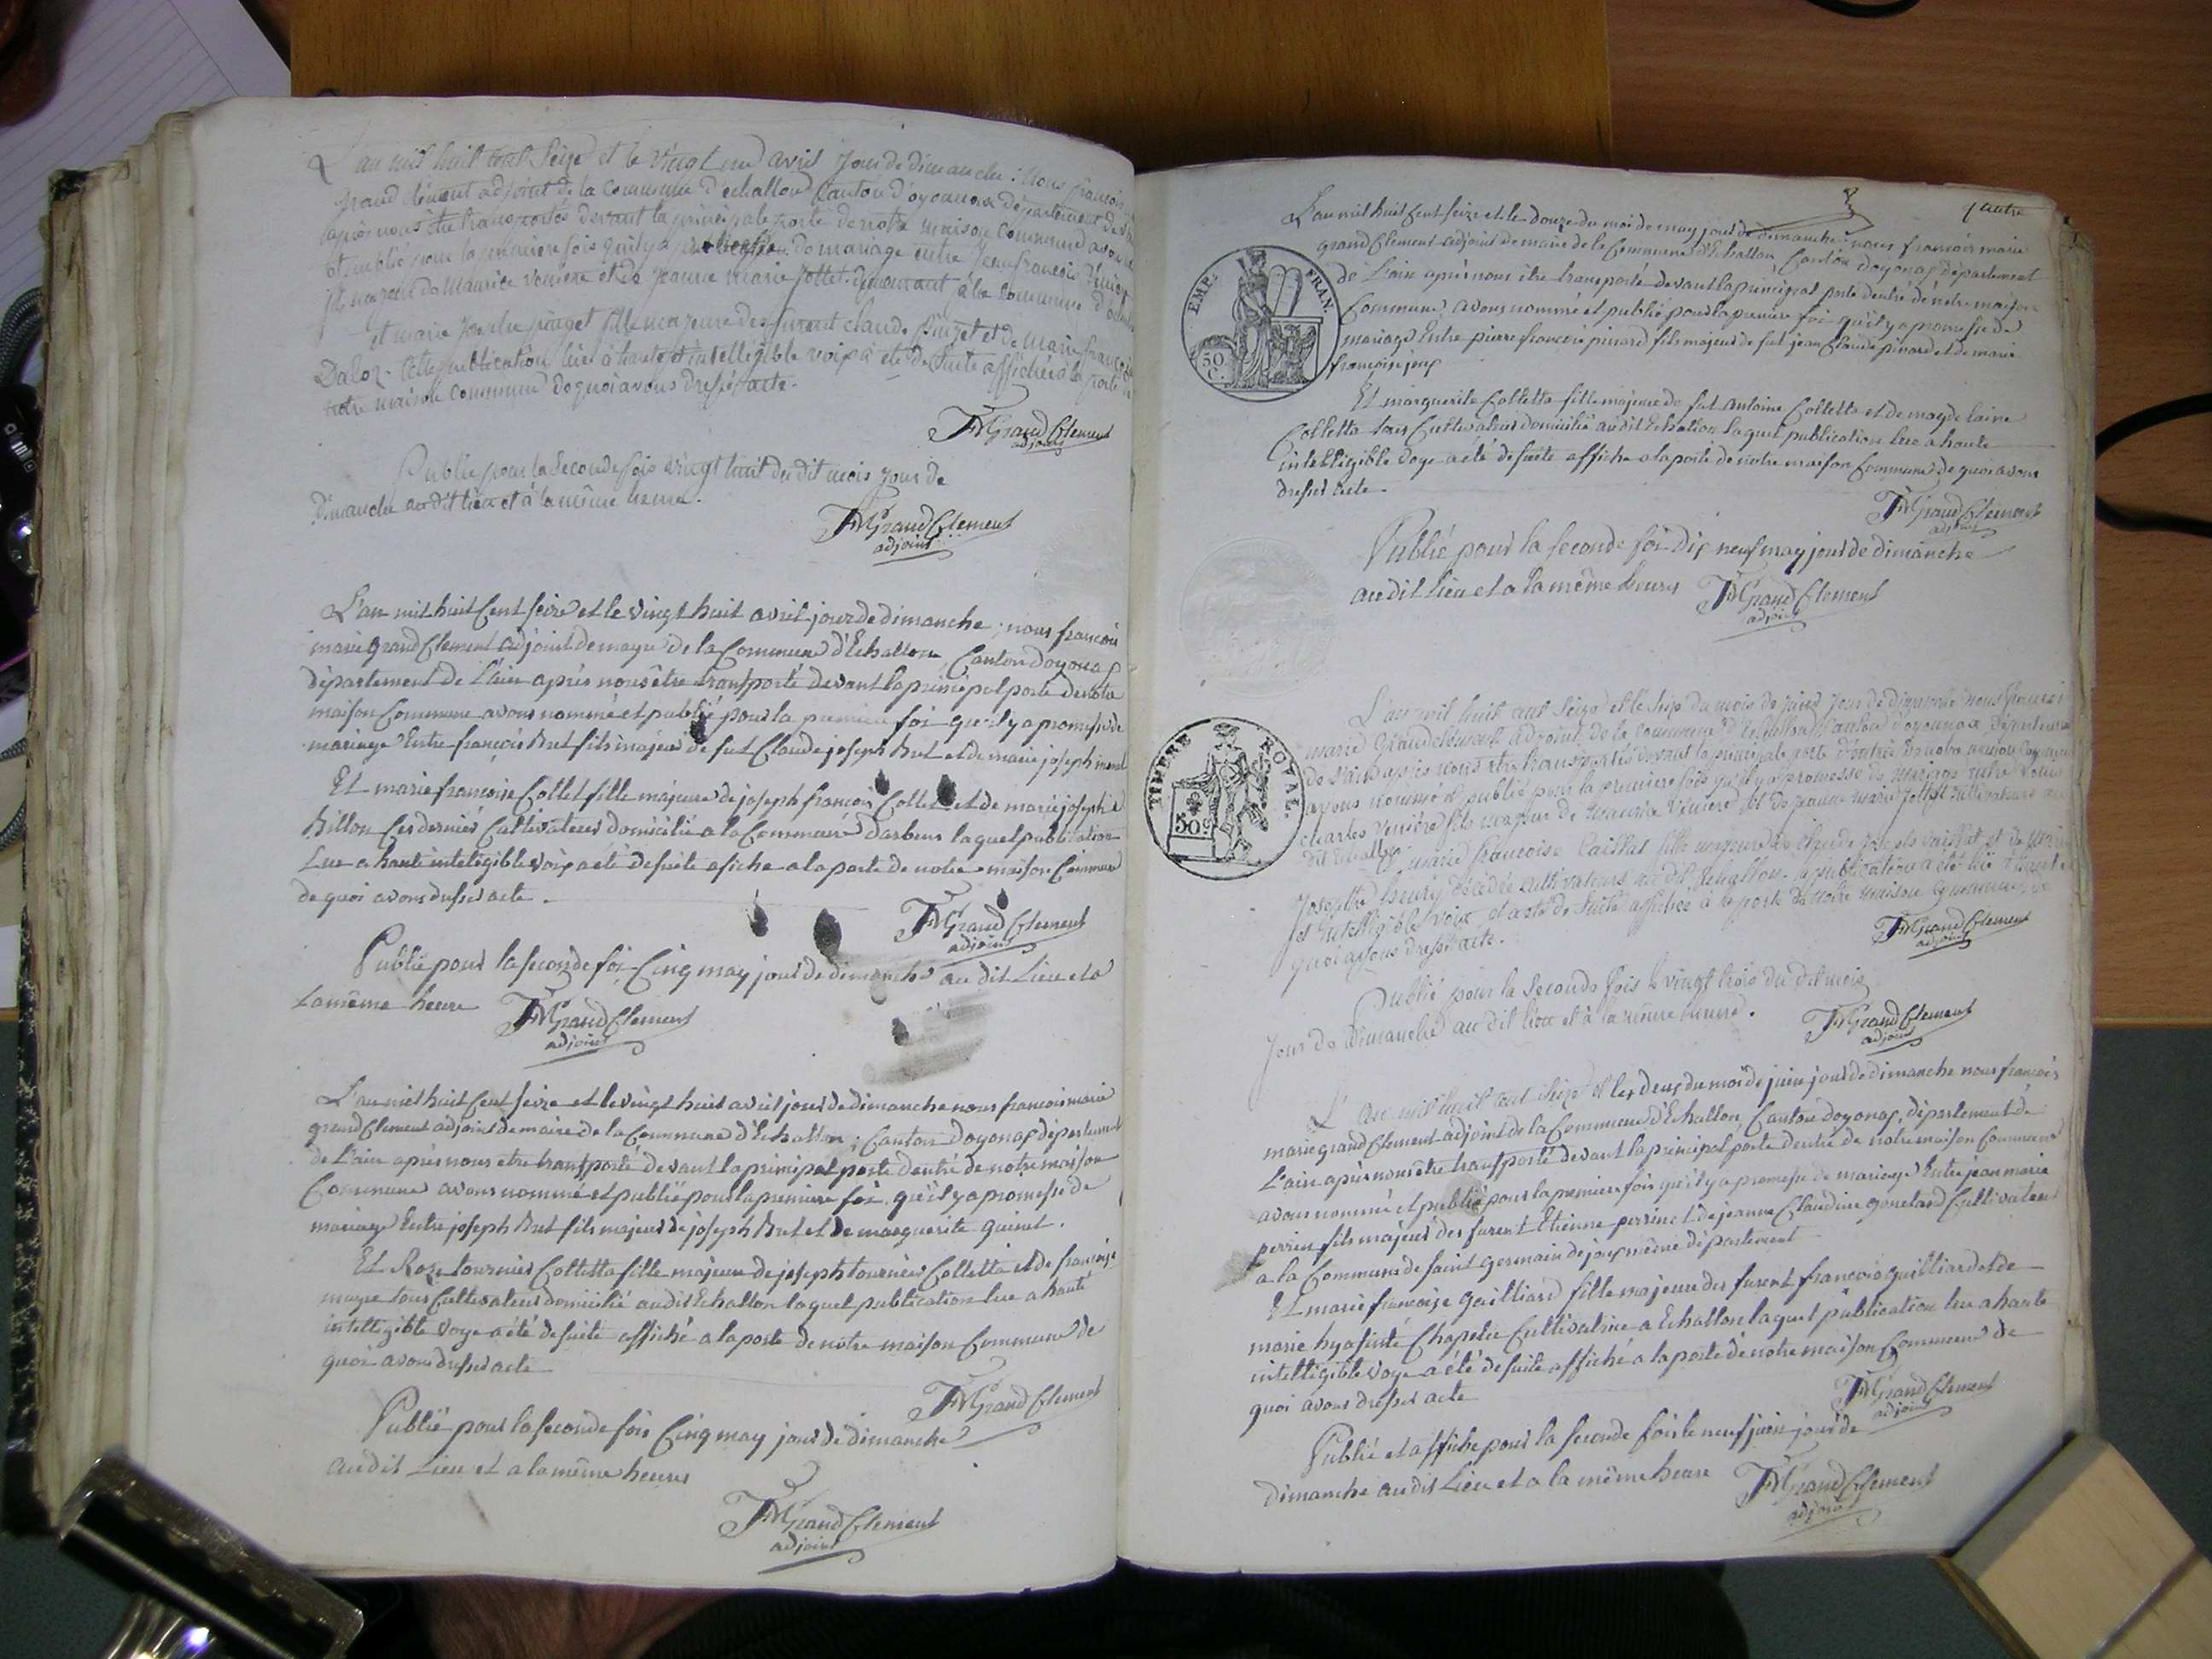 L'an mil huit cent seize et le vingt un avril jour de dimanche : nous françois
grand clément adjoint de la commune d'echallon canton d'oyonnax département de
après nous être transportés devant la principale porte de notre maison commune avons
et publié pour la première fois qu'il y a promesse de mariage entre Jean françois
fils majeur de Maurice veniere et de jeanne marie jottet demeurant à la commune d'
et marie josephe pinget fille majeure des furent claude Pinget et de marie françoise
Daloz. Cette publication lue à haute et intelligible voix a été de suite affichée à la porte de
notre maison commune de quoi avons dressé acte.
FMGrandClement
adjoint
Publié pour la seconde fois vingt huit du dit mois jour de
dimanche au dit lieu et à la même heure.
FMGrandClement
adjoint
L'an mil huit Cent seize et le vingt huit avril jour de dimanche ; nous françois
marie grand Clement adjoint de mayre de la Commune d'Echallon, Canton doyonax
département de L'ain après nous être transporté devant la principal porte de notre
maison Commune avons nommé et publié pour la premiere foi qu'il y a promesse de
mariage Entre françois Bret fils majeur de fut Claude joseph Bret et de marie joseph
Et marie françoise Collet fille majeure de joseph françois Collet et de marie josephte
Billon Ces derniés Cultivateurs domicilié a la Commune d'arbent laquel publication
Lue a haute inteligible voix a été de suite afiche a la porte de notre maison Commune
de quoi avons dressé acte.
FMGrandClement
adjoint
Publié pour la seconde foi Cinq may jour de dimanche au dit Lieu et a
la même heure FMGrandClement
adjoint
L'an mil huit Cent seize et le vingt huit avril jour de dimanche nous françois marie
grand Clement adjoint de maire de la Commune d'Echallon ; Canton Doyonax département
de L'ain après nous etre transporté devant la principal porte dentré de notre maison
Commune avons nommé et publié pour la premiere foi qu'il y a promesse de
mariage Entre joseph Bret fils majeur de joseph Bret et de marguerite guinet.
Et Roze tournier Colletta fille majeure de joseph tournier Colletta et de françoise
mayre tous Cultivateur domicilié audit Echallon laquel publication lue a haute
intelligible voye a été de suite affiché a la porte de notre maison Commune de
quoi avons dressé acte
FMGrandClement
Publié pour la seconde fois Cinq may jour de dimanche
au dit Lieu et a la même heures
FMGrandClement
adjoint
L'an mil huit Cent seize et le douze du moi de may jour de dimanche nous françois marie
grand Clement adjoint de maire de la Commune d'Echallon Canton doyonax département
de L'ain après nous être transporté devant la principal porte dentré de notre maison
Commune avons nommé et publié pour la premiere foi qu'il y a promesse de
mariage Entre pierre françois pinard fils majeur de fut jean Claude pinard et de marie
françoise
EMP. FRAN.
50 C.
Et marguerite Colletta fille majeure de fut antoine Colletta et de magdelaine
Colletta tous Cultivateur domicilié audit Echallon laquel publication lue a haute
intelligible voye a été de suite affiche a la porte de notre maison Commune de quoi avons
dressé acte.
FMGrandClement
adjoint
Publié pour la seconde foi Dix neuf may jour de dimanche
au dit Lieu et a la même heures FMGrandClement
adjoint
L'an mil huit cent seize et le seize du mois de juin jour de dimanche nous françois
marie Grandclement adjoint de la commune d'Echallon, canton d'oyonnax département
de l'ain après nous être transportés devant la principale porte d'entrée de notre maison commune
avons nommé et publié pour la première fois qu'il y a promesse de mariage entre
charles veniere fils majeur de Maurice veniere et de jeanne marie jottet cultivateurs au
dit Echallon
TIMBRE ROYAL
50 c
Et marie françoise fille majeure de claude joseph et de marie
Josephte henry décédée cultivateurs au dit Echallon. la publication a été lue à haute
et intelligible voix et a été de suite affichée à la porte de notre maison commune de
quoi avons dressé acte.
FMGrandClement
adjoint
Publié pour la seconde fois le vingt trois du dit mois
jour de dimanche au dit lieu et à la même heure. FMGrandClement
adjoint
L'an mil huit cent seize et les deux du moi de juin jour de dimanche nous françois
marie grand Clement adjoint de la Commune d'Echallon, Canton doyonax, département de
L'ain après nous être transporté devant la principal porte dentré de notre maison Commune
avons nommé et publié pour la premiere fois qu'il y a promesse de mariage Entre jean marie
perrin fils majeur des furent Etienne perrin et de jeanne Claudine gonetard Cultivateur
a la Commune de saint germain de joux même département
Et marie françoise gailliard fille majeure des furent françois guilliard et de
marie hyasinte Chapelu Cultivatrice a Echallon laquel publication lue a haute
intelligible voye a été de suite affiché a la porte de notre maison Commune de
quoi avons dressé acte
FMGrandClement
adjoint
Publié et affiche pour la seconde fois le neuf juin jour de
dimanche au dit Lieu et a la même heure FMGrandClement
adjoint